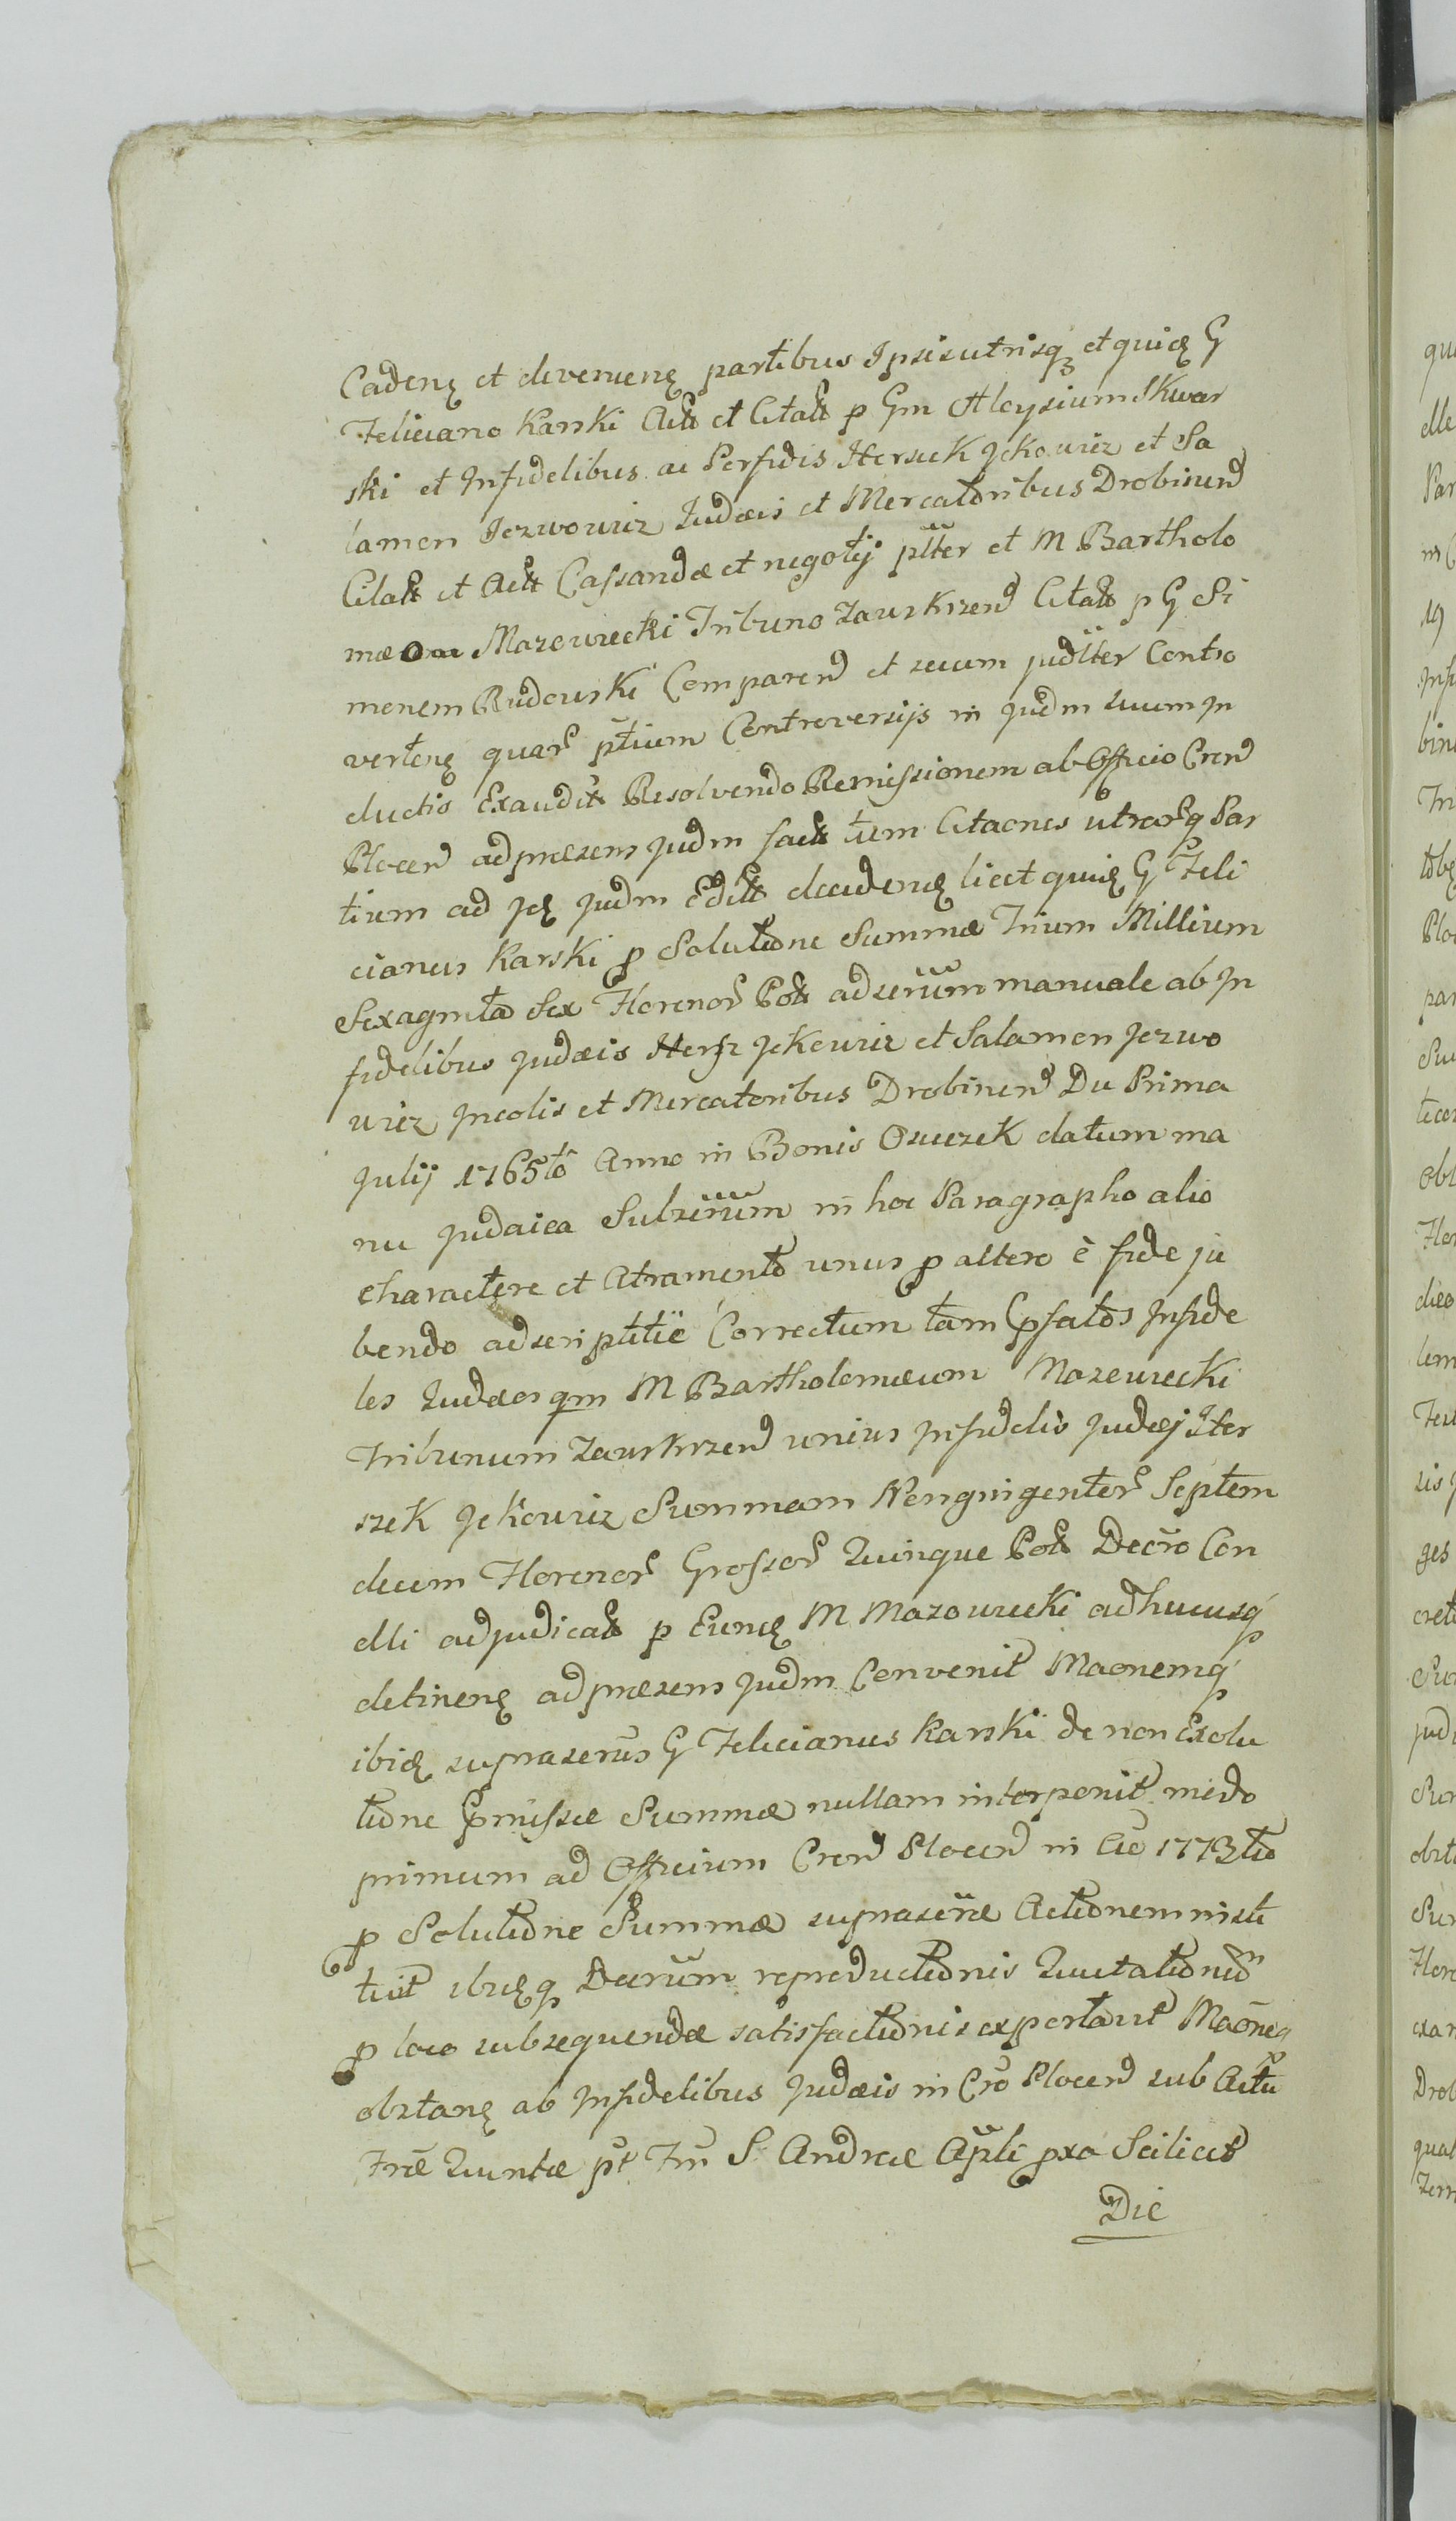 Cadenę et devenienę partibus Ipsis utrisqȝ et quidę G
Feliciano Karski Act et Citat p Gm Aloysium Skwar
ski et Infidelibus ac Perfidis Herszek Jckowicz et Sa
lamon Jezwowicz Judæis et Mercatoribus Drobinend
Citat et Act Cassandæ et negotij plter et M Bartholo
mæo Mazowiecki Tribuno Zawskrzend Citat p G Si
menem Rudowski Comparend et secum judlter Contro
vertenę quar ptium Controversijs in Judm suum In
ductis Exaudit Resolvendo Remissionem ab Officio Crend
Plocend ad præsens Judm fact tum Citaones utrarq Par
tium ad Ję Judm Edit decidenę licet quidę G Feli
cianus Karski p Solutione Summæ Trium Millium
Sexaginta Sex Florenor Pol ad serum manuale ab In
fidelibus Judæis Hersz Jckowicz et Salamon Jezwo
wicz Incolis et Mercatoribus Drobinend Die Prima
Julij 1765to Anno in Bonis Osieczek datum ma
nu Judaica Subscrium in hoc Paragrapho alio
charactere et Atramento unus p altero è fide ju
bendo adscriptitie Correctum tam Cpsatos Infide
les Judæos qm M Bartholomæum Mazowiecki
Tribunum Zawskrzend unius Infidelis Judæj Her
szek Jckowicz Summam Nongnigentor Septem
decem Florenor Grossor Quinque Pol Decro Con
dli adjudicat p Eundę M Mazowiecki adhucusq
detinenę ad præsens Judm Convenit Maonemq
ibidę suprascrus G Felicianus Karski de non Exolu
tione Cpmissæ Summæ nullam interponit modo
primum ad Officium Crend Plocend in Ao 1773tio
p Solutione Summæ suprascriæ Actionem insti
tuit ibidęq Decrum reproductionis Quietationum
p loco subsequendæ satisfactionis exportavit Maoneq
obstanę ab Infidelibus Judæis in Cro Plocend sub Actu
Friæ Quintæ pt Fm S Andreæ Apli pxo Scilicet
Die